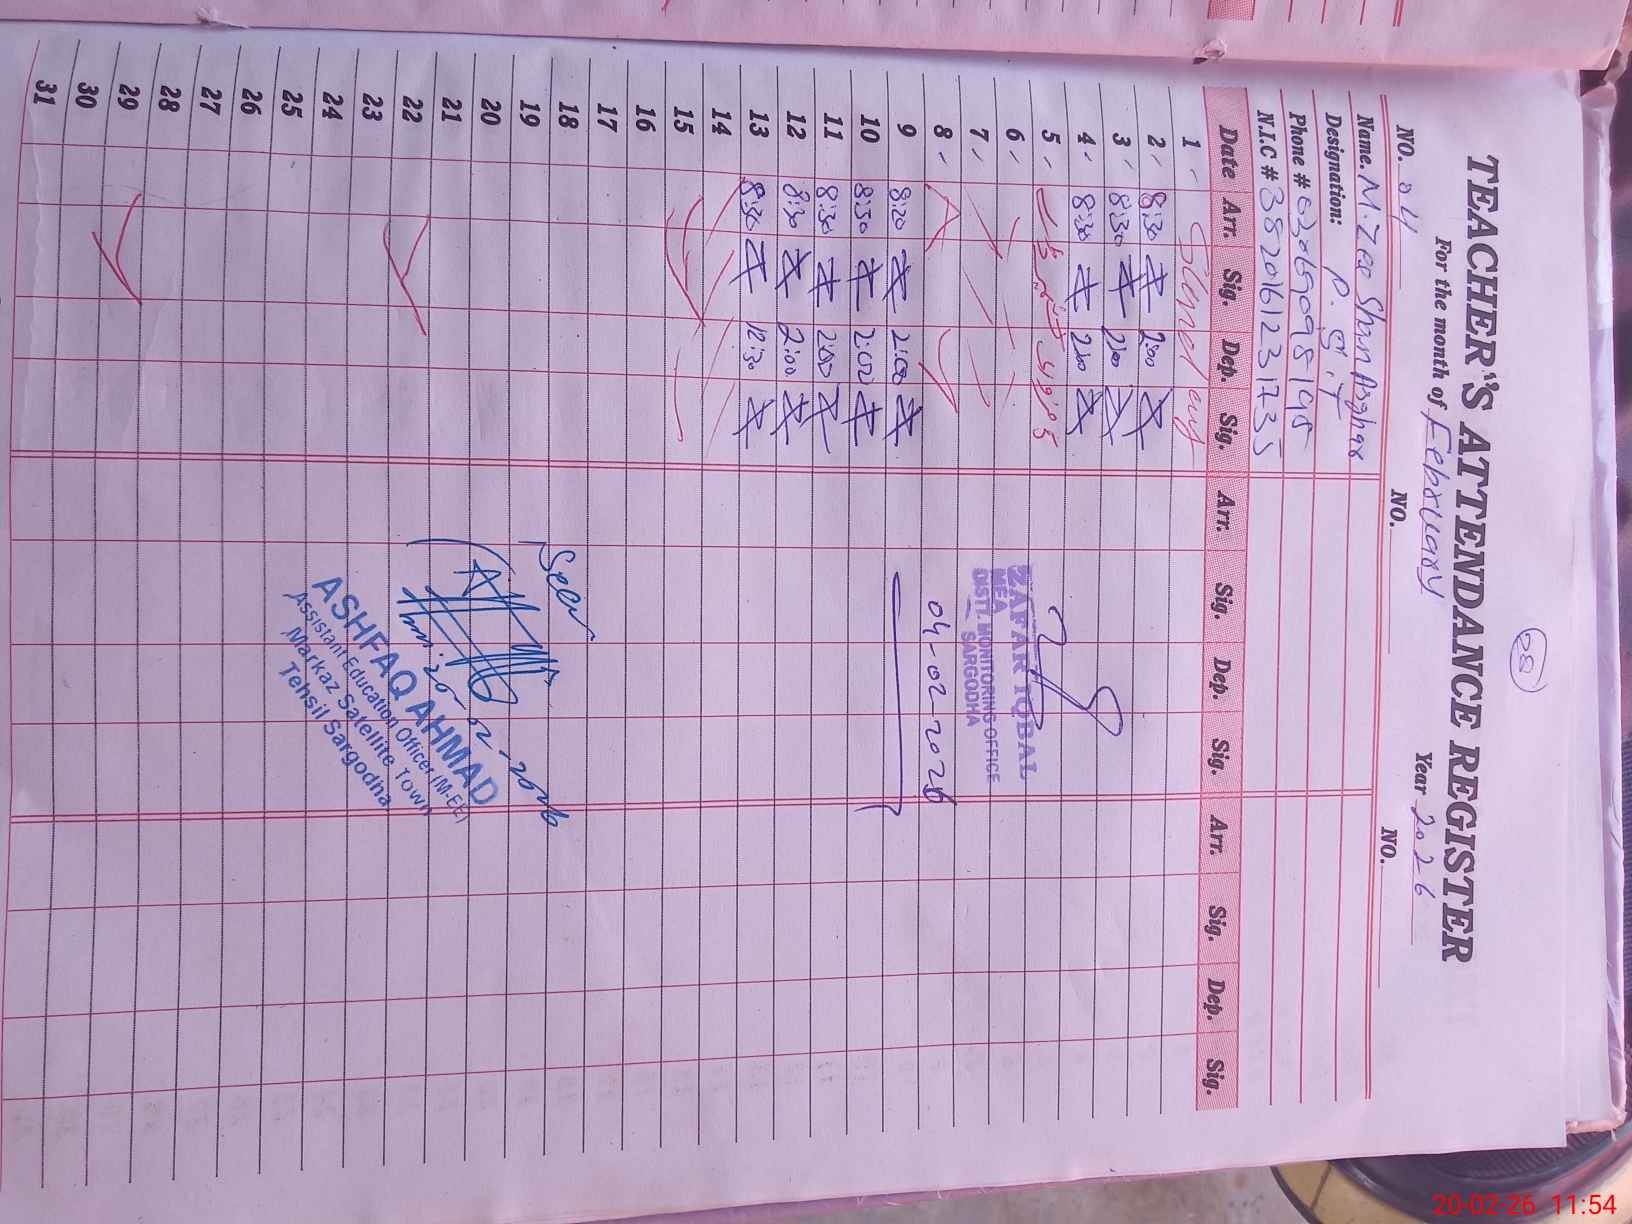 08
TEACHER'S ATTENDANCE REGISTER
For the month of February Year 2026
NO. 04 NO. NO.
Name. M. Zee Shan Asghar
Designation: P.S.T
Phone #
N.I.C # 3820161231735
Date Arr. Sig. Dep. Sig. Arr. Sig. Dep. Sig. Arr. Sig. Dep. Sig.
1
2 8:30 2:00
3 8:30 2:00
4 8:30 2:00
5
6
7
8
9 8:20 2:00
10 8:30 2:00
11 8:30 2:00
12 8:30 2:00
13 8:30 12:30
14
15
16
17
18
19
20
21
22
23
24
25
26
27
28
29
30
31
ZAFAR IQBAL
MEA
DSTT. MONITORING OFFICE
SARGODHA
04-02-2026
Seen
20-02-2026
ASHFAQ AHMAD
Assistant Education Officer (M-EE)
Markaz Satellite Town
Tehsil Sargodha
20-02-26 11:54